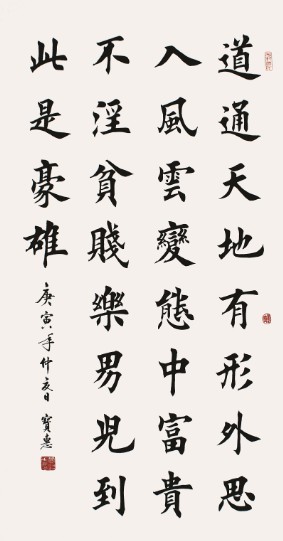 道通天地有形外思
入風雲變態中富貴
不淫貧賤樂男兒到
此是豪雄
庚寅年 日 寶惠